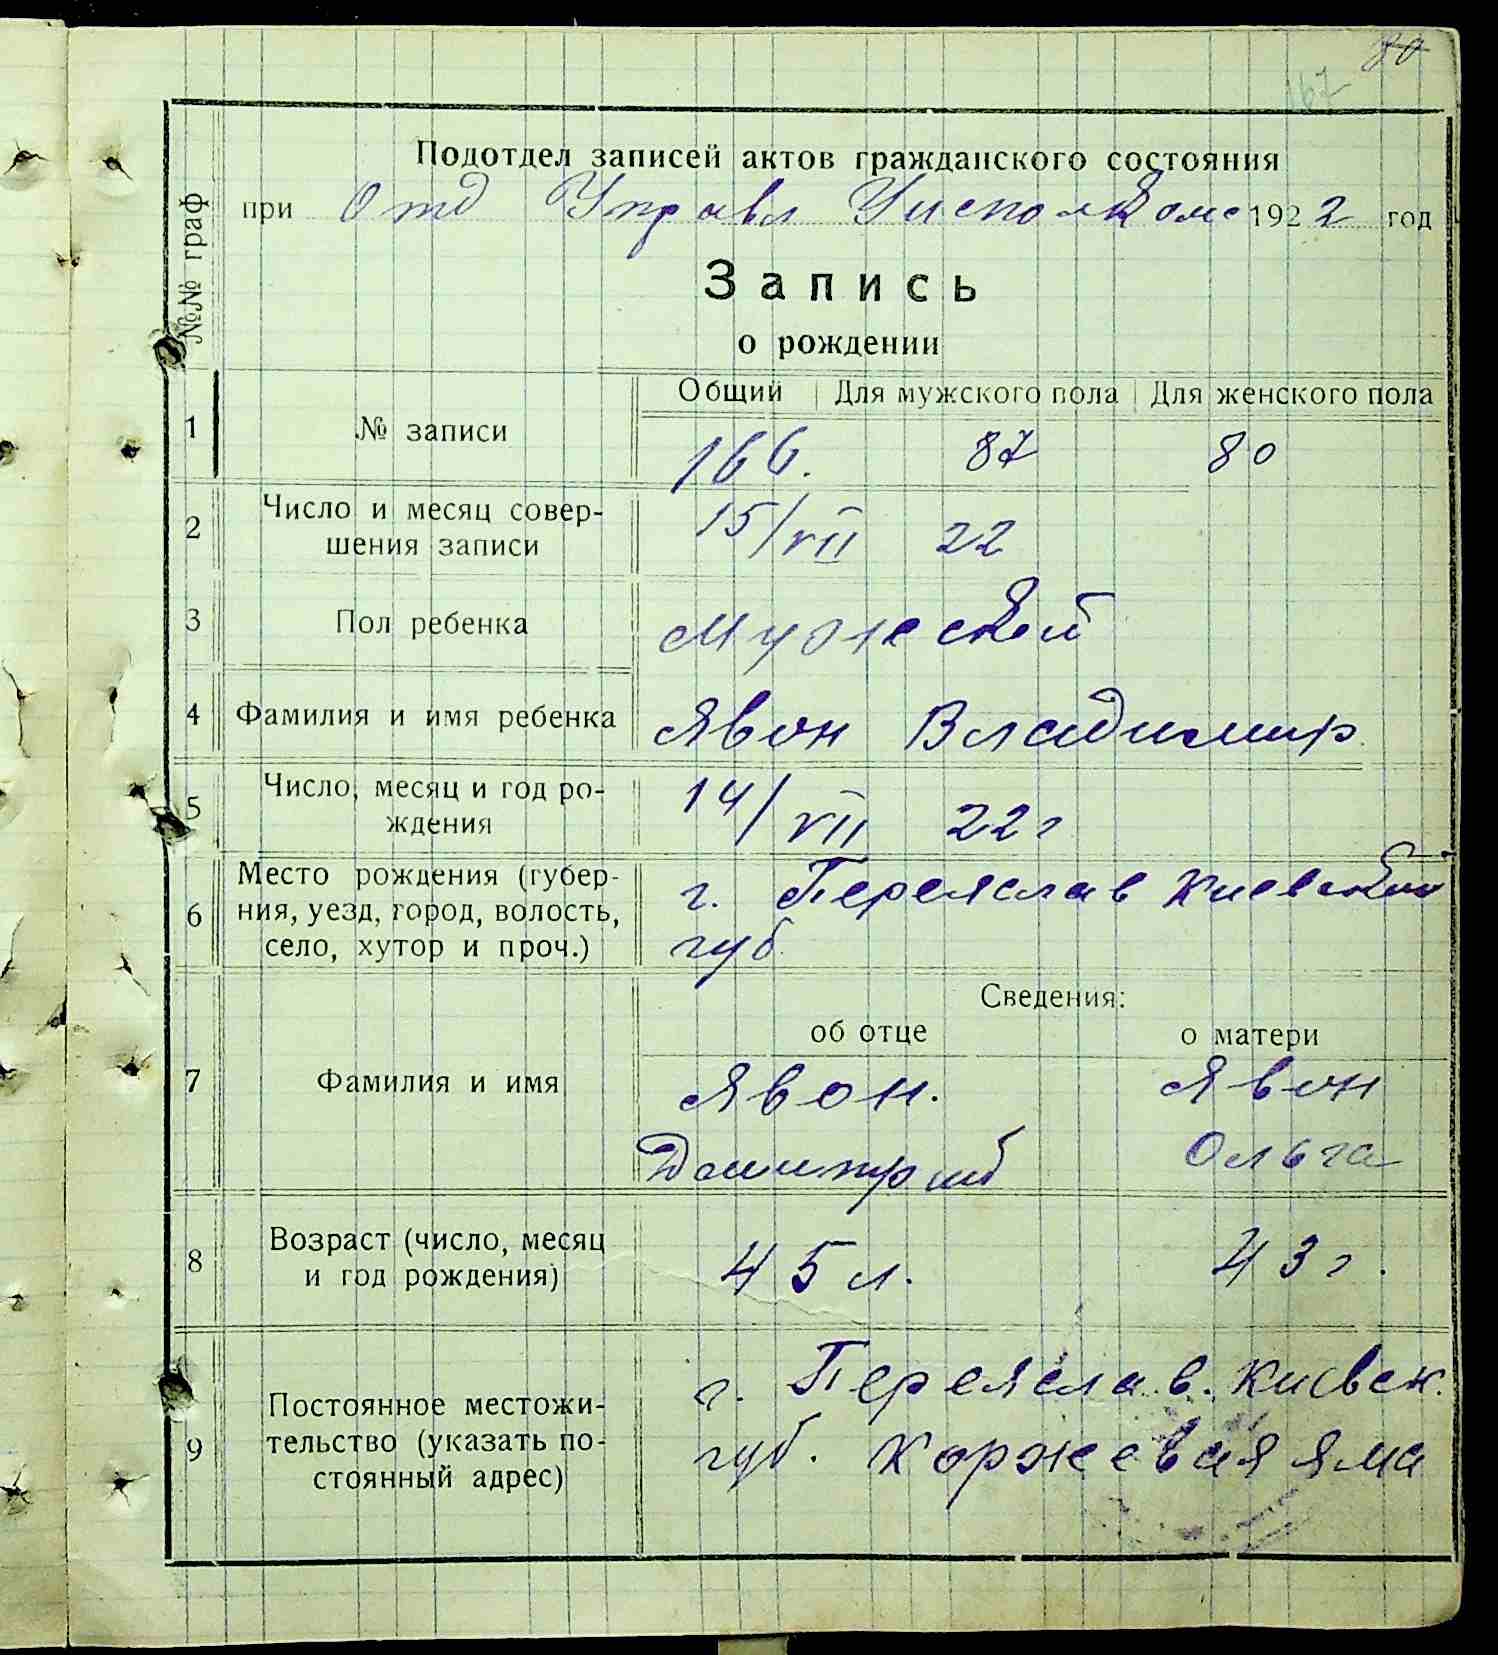 80
167
Подотдел записей актов гражданского состояния
при Отд Управл Уисполкоме 1922 год
№№ граф
Запись
о рождении
Общий Для мужского пола Для женского пола
1 № записи 166. 87 80
2 Число и месяц совер-
шения записи 15/VII 22
3 Пол ребенка Мужской
4 Фамилия и имя ребенка Явон Владимир
5 Число, месяц и год ро-
ждения 14/VII 22 г
6 Место рождения (губер-
ния, уезд, город, волость,
село, хутор и проч.) г. Переяслав Киевской
губ.
Сведения:
об отце о матери
7 Фамилия и имя Явон. Явон
Дмитрий Ольга
8 Возраст (число, месяц
и год рождения) 45 л. 43 г.
9 Постоянное местожи-
тельство (указать по-
стоянный адрес) г. Переяслав. Киевск.
губ. Коржевая яма